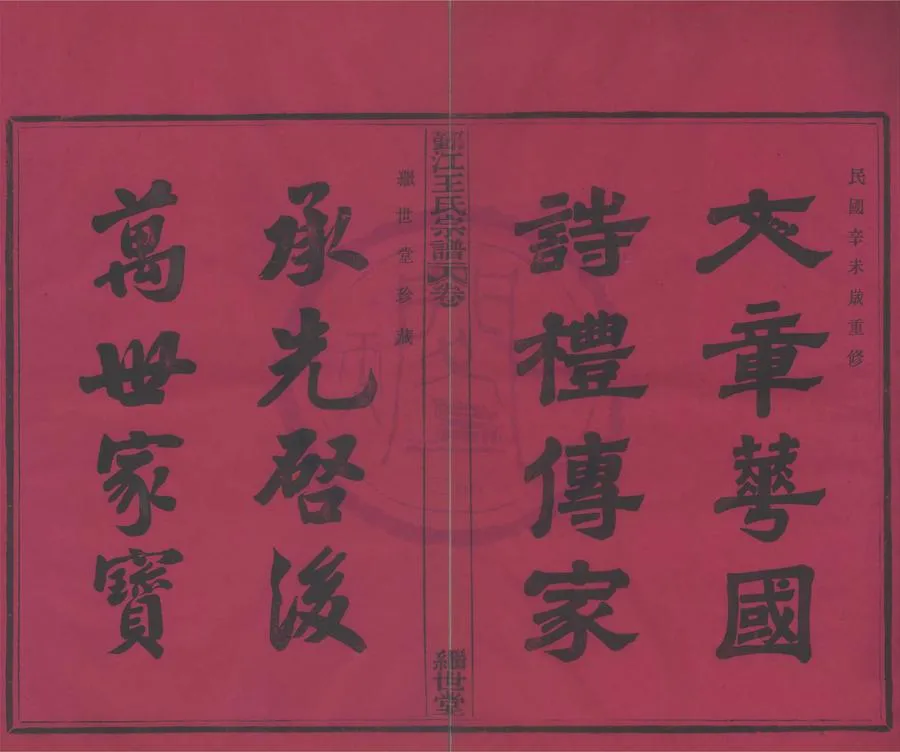 民國辛未歲重修
文章華國
詩禮傳家
鄞江王氏宗譜天卷
繼世堂
繼世堂珍藏
承先啓後
萬世家寶